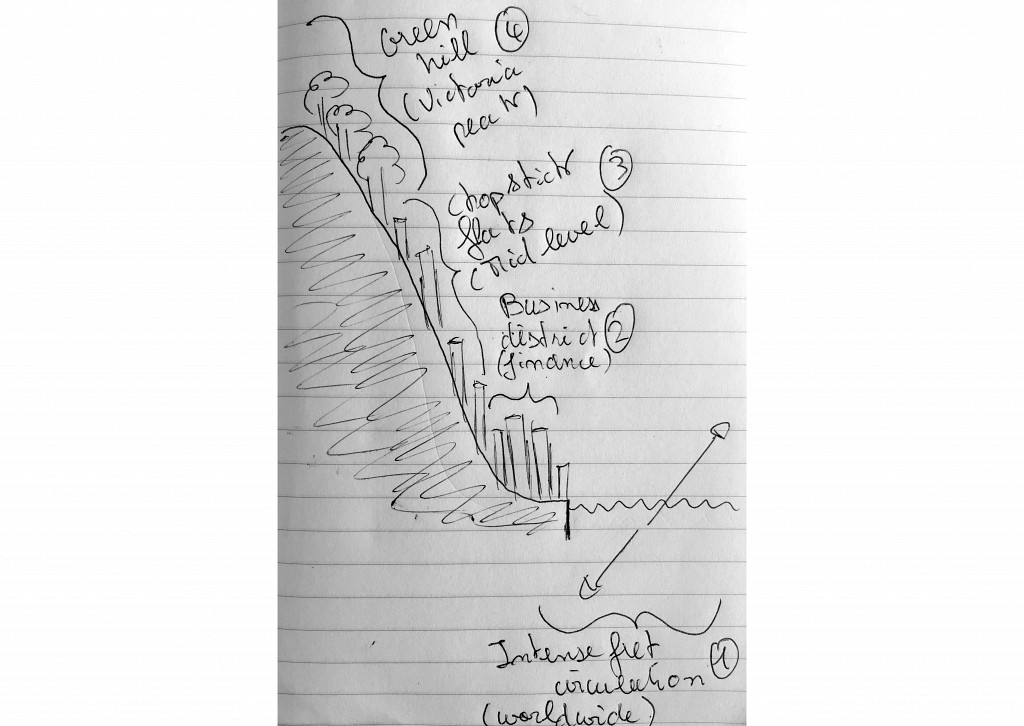 Green 4
hill
(Victoria
peak)
Chopstick 3
flats
(Mid level)
Business
district 2
(finance)
Intense fret 1
circulation
(worldwide)